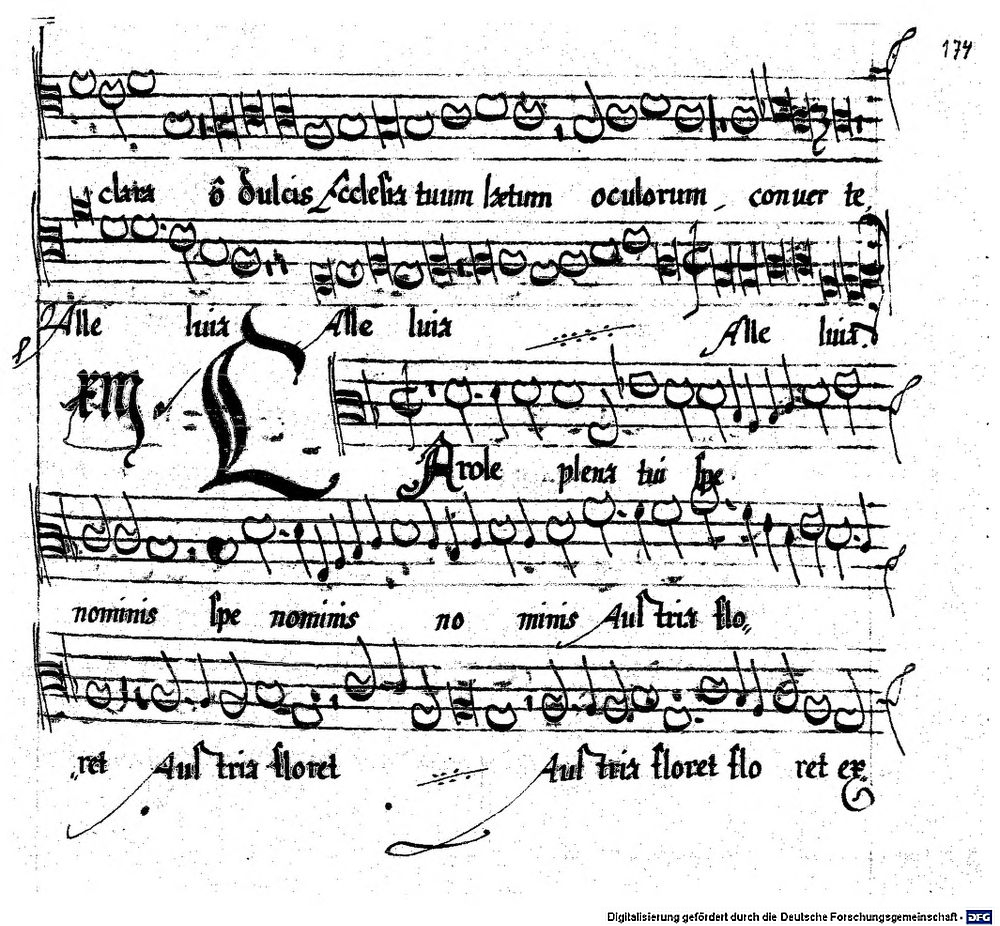 174
clara ô dulcis Ecclesia tuum lætum oculorum conuer te,
Alle luia Alle luia Alle luia.
XIII C Arole plena tui spe
nominis spe nominis no minis Austria flo,,
,,ret Austria floret Austria floret flo ret ex,,
Digitalisierung gefördert durch die Deutsche Forschungsgemeinschaft - DFG